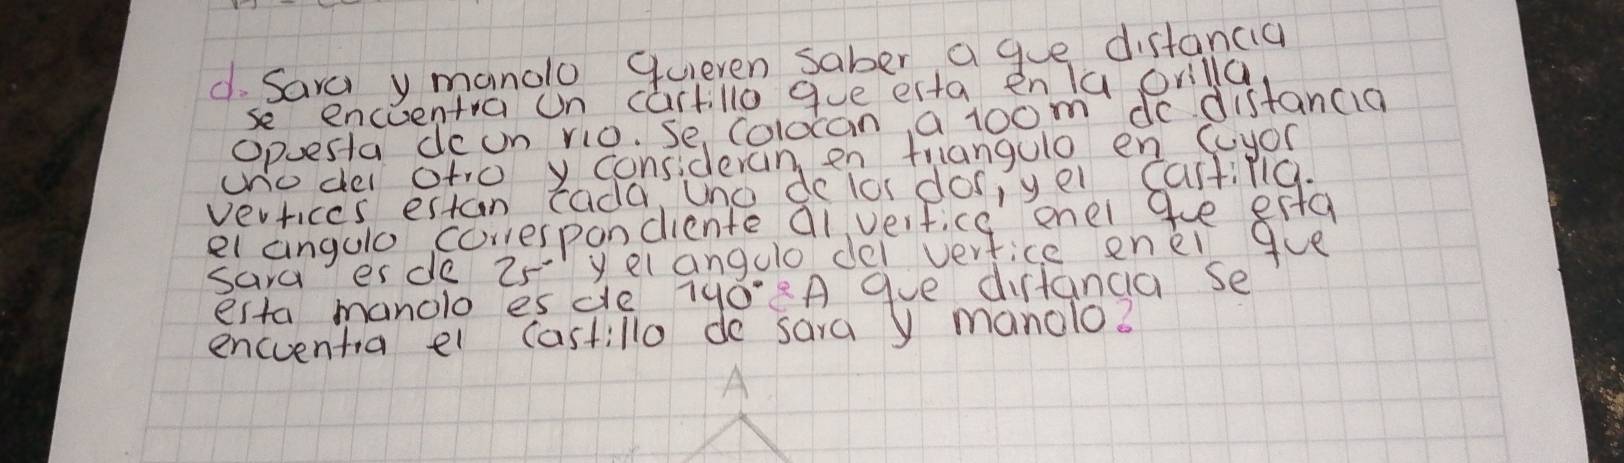 d. Sara y manolo quieren saber a que distancia
se encuentra un castillo que esta en la orilla,
opuesta de un rio. se colocan a 100m de distancia
uno del otro y consideran en triangulo en cuyos
vertices estan cada uno de los dos, y el castillo.
el angulo correspondiente al vertice enel que esta
sara es de 25° y el angulo del vertice enel que
esta manolo es de 140° ¿A que distancia se
encuentra el castillo de sara y manolo?
A